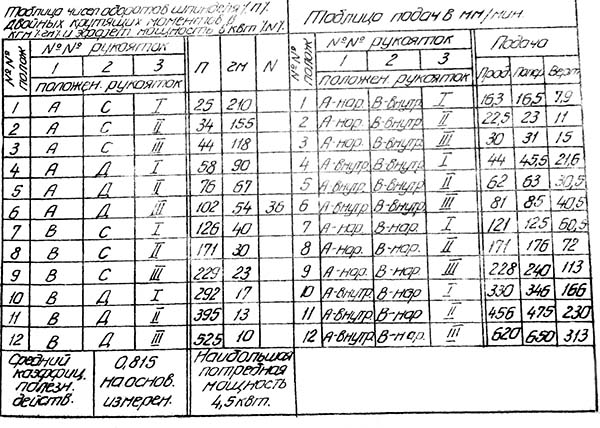 Таблица чисел оборотов шпинделя /п/,
двойных крутящих моментов, в
кгм /2м/ и эффект мощность в квт /N/.
№№ полож
№№ рукояток
1 2 3
положен. рукояток
п 2м N
1 А С I 25 210
2 А С II 34 155
3 А С III 44 118
4 А Д I 58 90
5 А Д II 76 67
6 А Д III 102 54 36
7 В С I 126 40
8 В С II 171 30
9 В С III 229 23
10 В Д I 292 17
11 В Д II 395 13
12 В Д III 525 10
Средний
коэффиц.
полезн.
действ.
0,815
на основ.
измерен.
Наибольшая
потребная
мощность
4,5 квт.
Таблица подач в мм/мин
№№ полож
№№ рукояток
1 2 3
положен. рукояток
Подача
Прод. Попер. Верт.
1 А-нар. В-внутр. I 16,3 16,5 7,9
2 А-нар. В-внутр. II 22,5 23 11
3 А-нар. В-внутр. III 30 31 15
4 А-внутр. В-внутр. I 44 45,5 21,6
5 А-внутр. В-внутр. II 62 63 30,5
6 А-внутр. В-внутр. III 81 85 40,5
7 А-нар. В-нар I 121 125 60,5
8 А-нар. В-нар. II 171 176 72
9 А-нар. В-нар III 228 240 113
10 А-внутр. В-нар I 330 346 166
11 А-внутр. В-нар II 456 475 230
12 А-внутр. В-нар. III 620 650 313